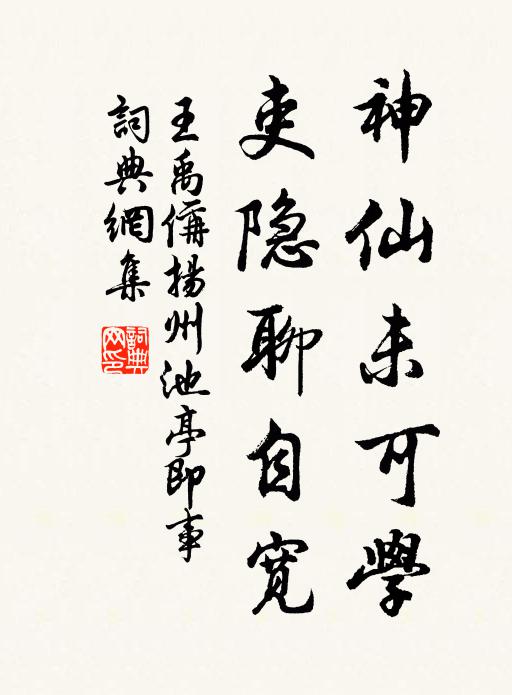 神仙未可學
吏隐聊自寬
王禹偁揚州池亭即事
詞典網集
詞典网印